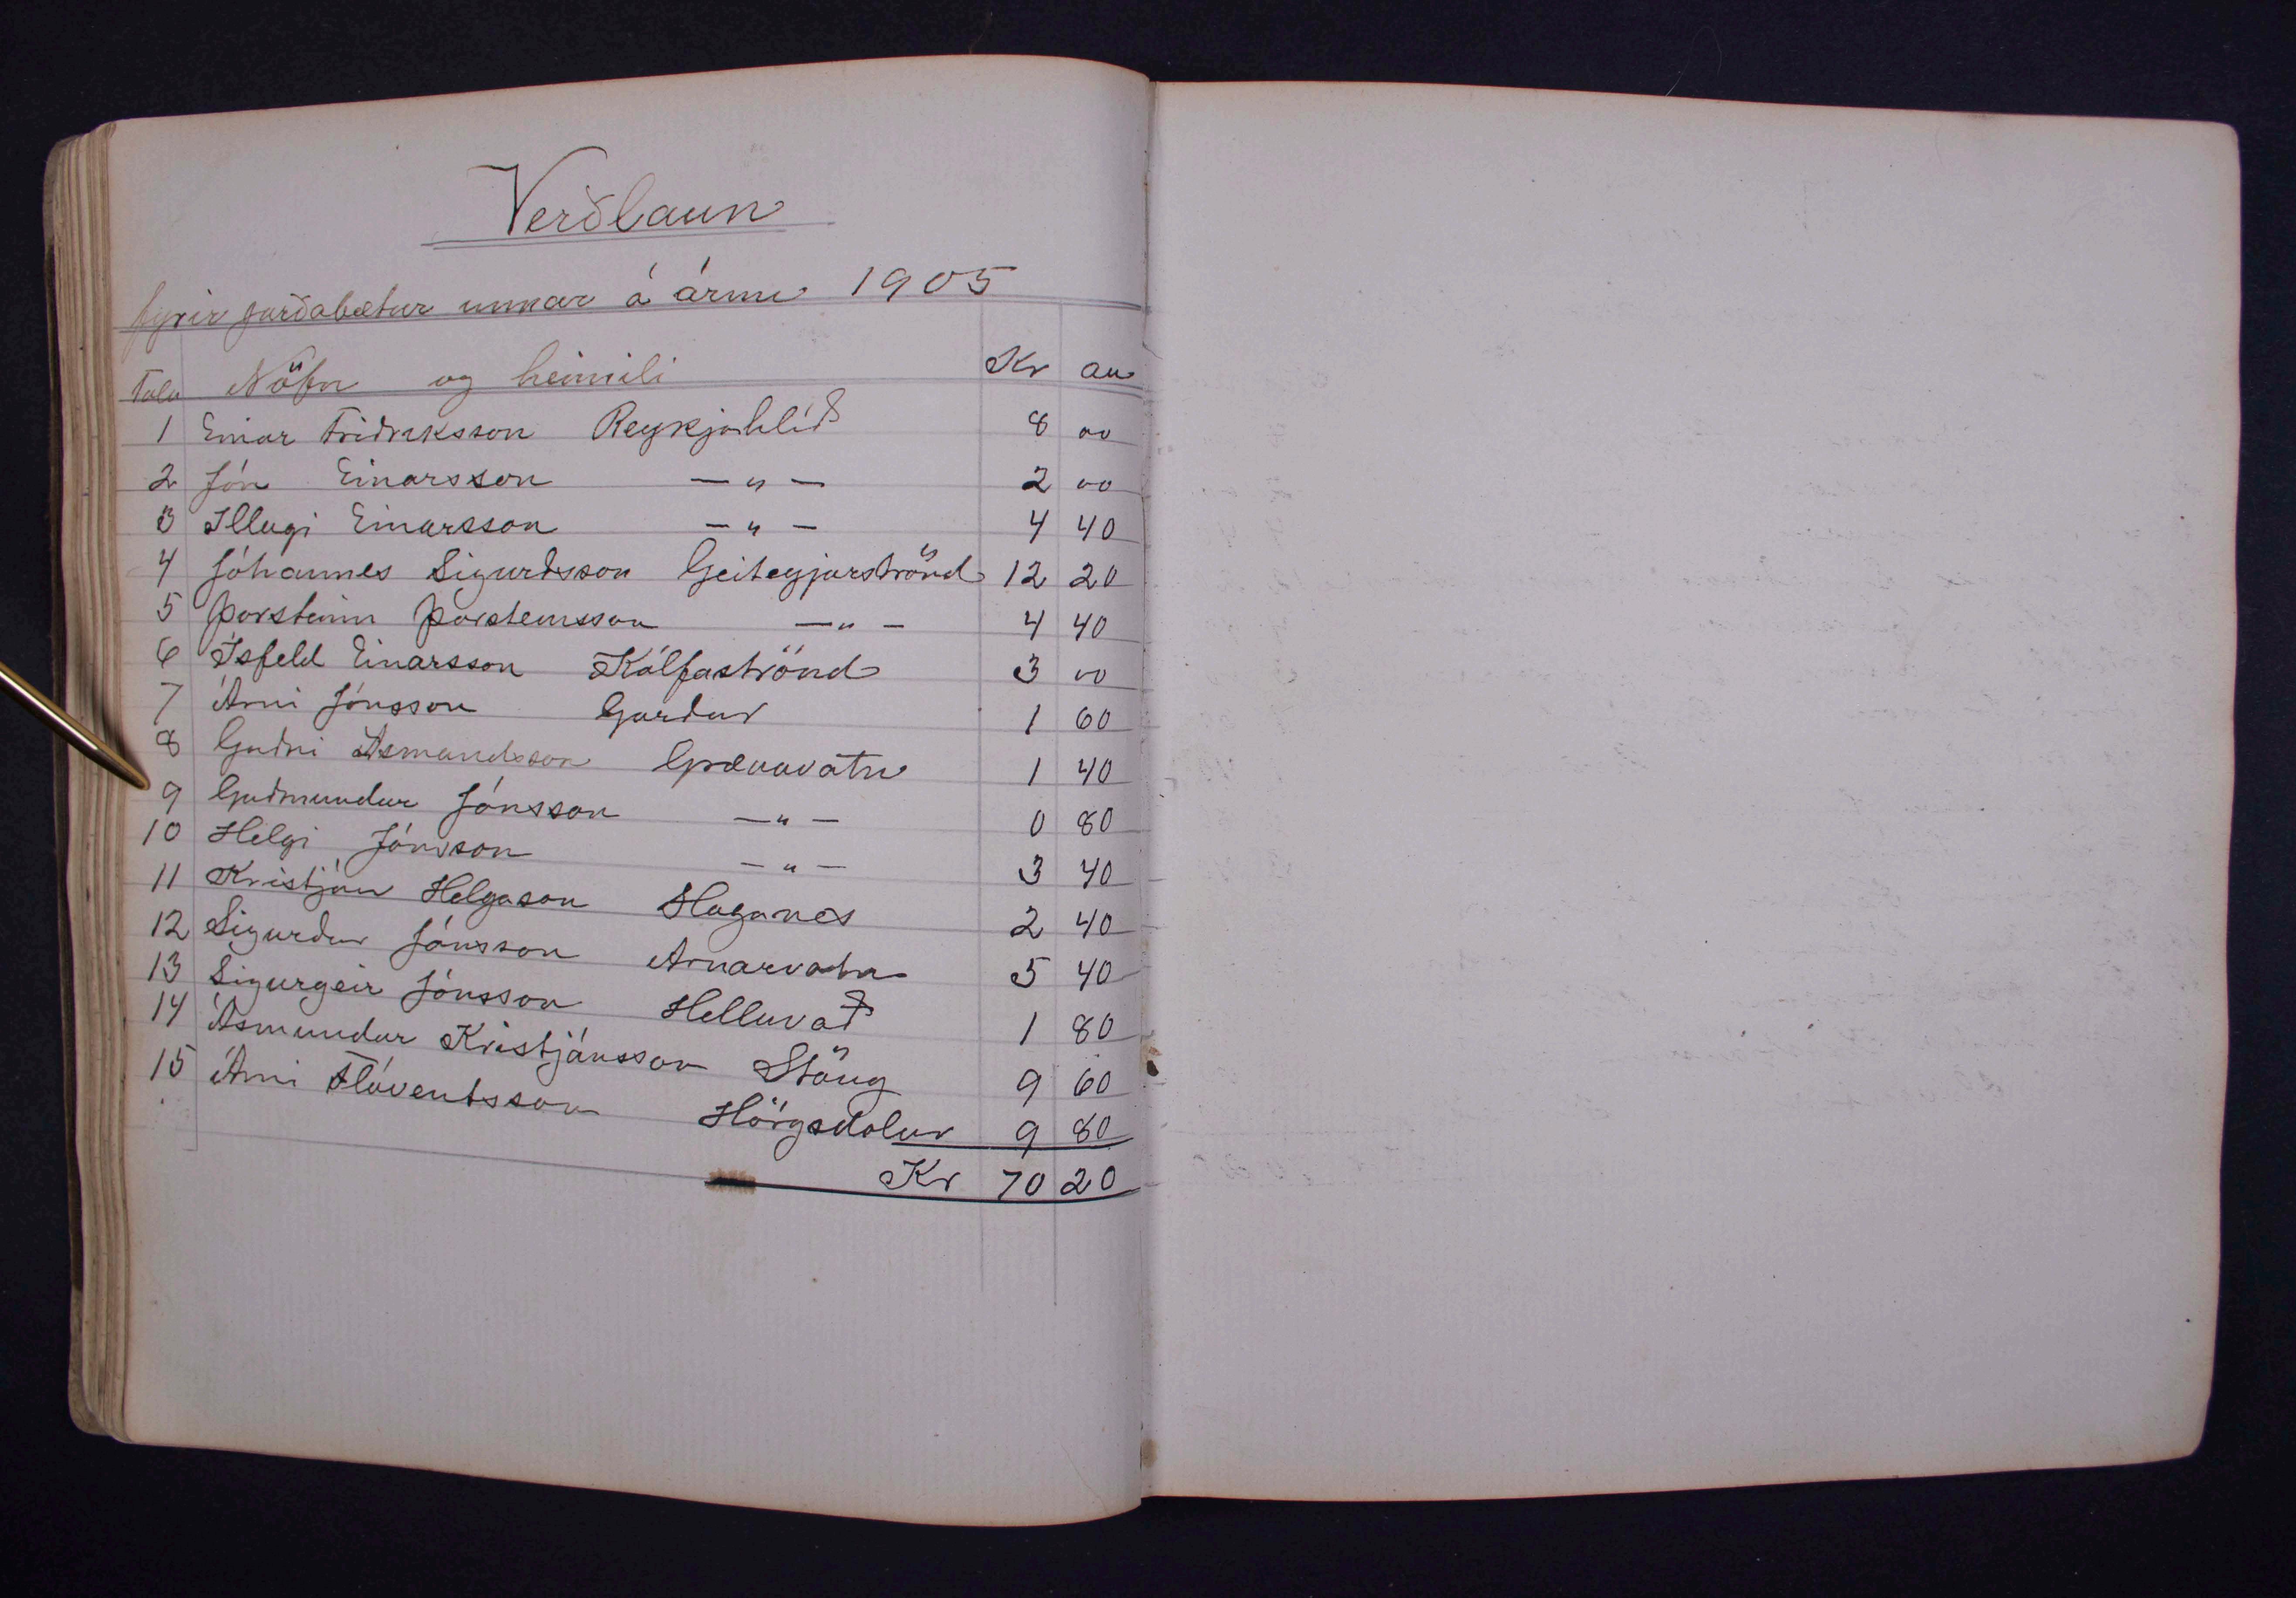 Verðlaun
fyrir jarðabætur unnar á árinu 1905
Tala Nöfn og heimili Kr au
1 Einar Friðriksson Reykjahlíð 8 00
2 Jón Einarsson — " — 2 00
3 Illugi Einarsson — " — 4 40
4 Jóhannes Sigurðsson Geiteyjarströnd 12 20
5 Þorsteinn Þorsteinsson — " — 4 40
6 Ísfeld Einarsson Kálfaströnd 3 00
7 Árni Jónsson Garður 1 60
8 Guðni Ásmundsson Grænavatn 1 40
9 Guðmundur Jónsson — " — 0 80
10 Helgi Jónsson — " — 3 40
11 Kristján Helgason Haganes 2 40
12 Sigurður Jónsson Arnarvatn 5 40
13 Sigurgeir Jónsson Helluvað 1 80
14 Ásmundur Kristjánsson Stöng 9 60
15 Árni Flóventsson Hörgsdalur 9 80
Kr 70 20